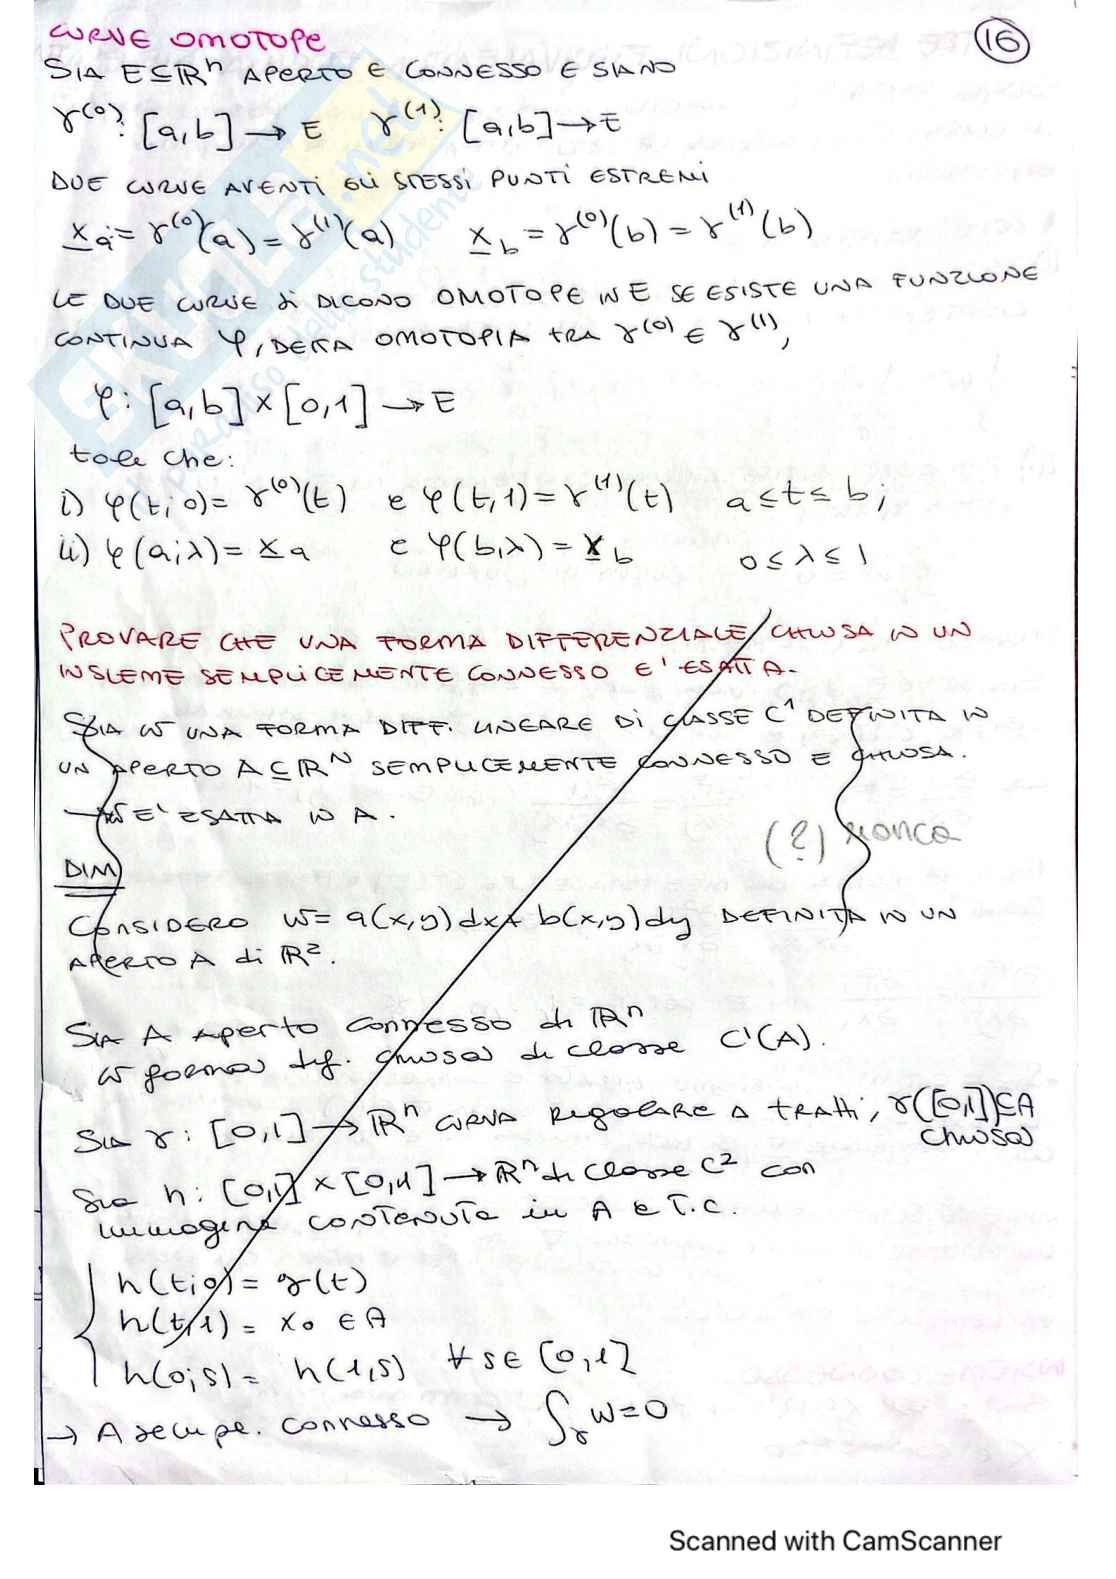 CURVE OMOTOPE
16
SIA E ⊆ ℝⁿ APERTO E CONNESSO E SIANO
γ⁽⁰⁾: [a,b] → E γ⁽¹⁾: [a,b] → E
DUE CURVE AVENTI GLI STESSI PUNTI ESTREMI
x_a = γ⁽⁰⁾(a) = γ⁽¹⁾(a) x_b = γ⁽⁰⁾(b) = γ⁽¹⁾(b)
LE DUE CURVE SI DICONO OMOTOPE IN E SE ESISTE UNA FUNZIONE
CONTINUA φ, DETTA OMOTOPIA TRA γ⁽⁰⁾ E γ⁽¹⁾,
φ: [a,b] × [0,1] → E
tale che:
i) φ(t;0) = γ⁽⁰⁾(t) e φ(t,1) = γ⁽¹⁾(t) a ≤ t ≤ b;
ii) φ(a;λ) = x_a e φ(b,λ) = x_b 0 ≤ λ ≤ 1
PROVARE CHE UNA FORMA DIFFERENZIALE CHIUSA IN UN
INSIEME SEMPLICEMENTE CONNESSO E' ESATTA.
SIA ω UNA FORMA DIFF. LINEARE DI CLASSE C¹ DEFINITA IN
UN APERTO A ⊆ ℝᴺ SEMPLICEMENTE CONNESSO E CHIUSA.
→ ω E' ESATTA IN A.
(?) manca
DIM
CONSIDERO ω = a(x,y)dx + b(x,y)dy DEFINITA IN UN
APERTO A di ℝ².
SIA A APERTO connesso di ℝⁿ
ω forma dif. chiusa di classe C¹(A).
SIA γ: [0,1] → ℝⁿ CURVA REGOLARE A TRATTI, γ([0,1]) ⊆ A
chiusa
Sia h: [0,1] × [0,1] → ℝⁿ di classe C² con
immagine contenuta in A e T.C.
h(t;0) = γ(t)
h(t,1) = x₀ ∈ A
h(0;s) = h(1,s) ∀ s ∈ [0,1]
→ A sempl. connesso → ∫_γ ω = 0
Scanned with CamScanner